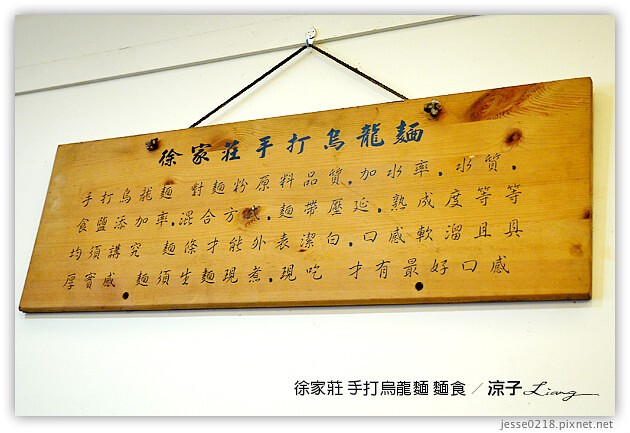 徐家莊手打烏龍麵
手打烏龍麵 對麵粉原料品質.加水率.水質.
食鹽添加率.混合方式.麵帶壓延.熟成度等等
均須講究 麵條才能外表潔白.口感軟溜且具
厚實感 麵須生麵現煮.現吃 才有最好口感
徐家莊 手打烏龍麵 麵食 ／ 涼子 Liang
jesse0218.pixnet.net